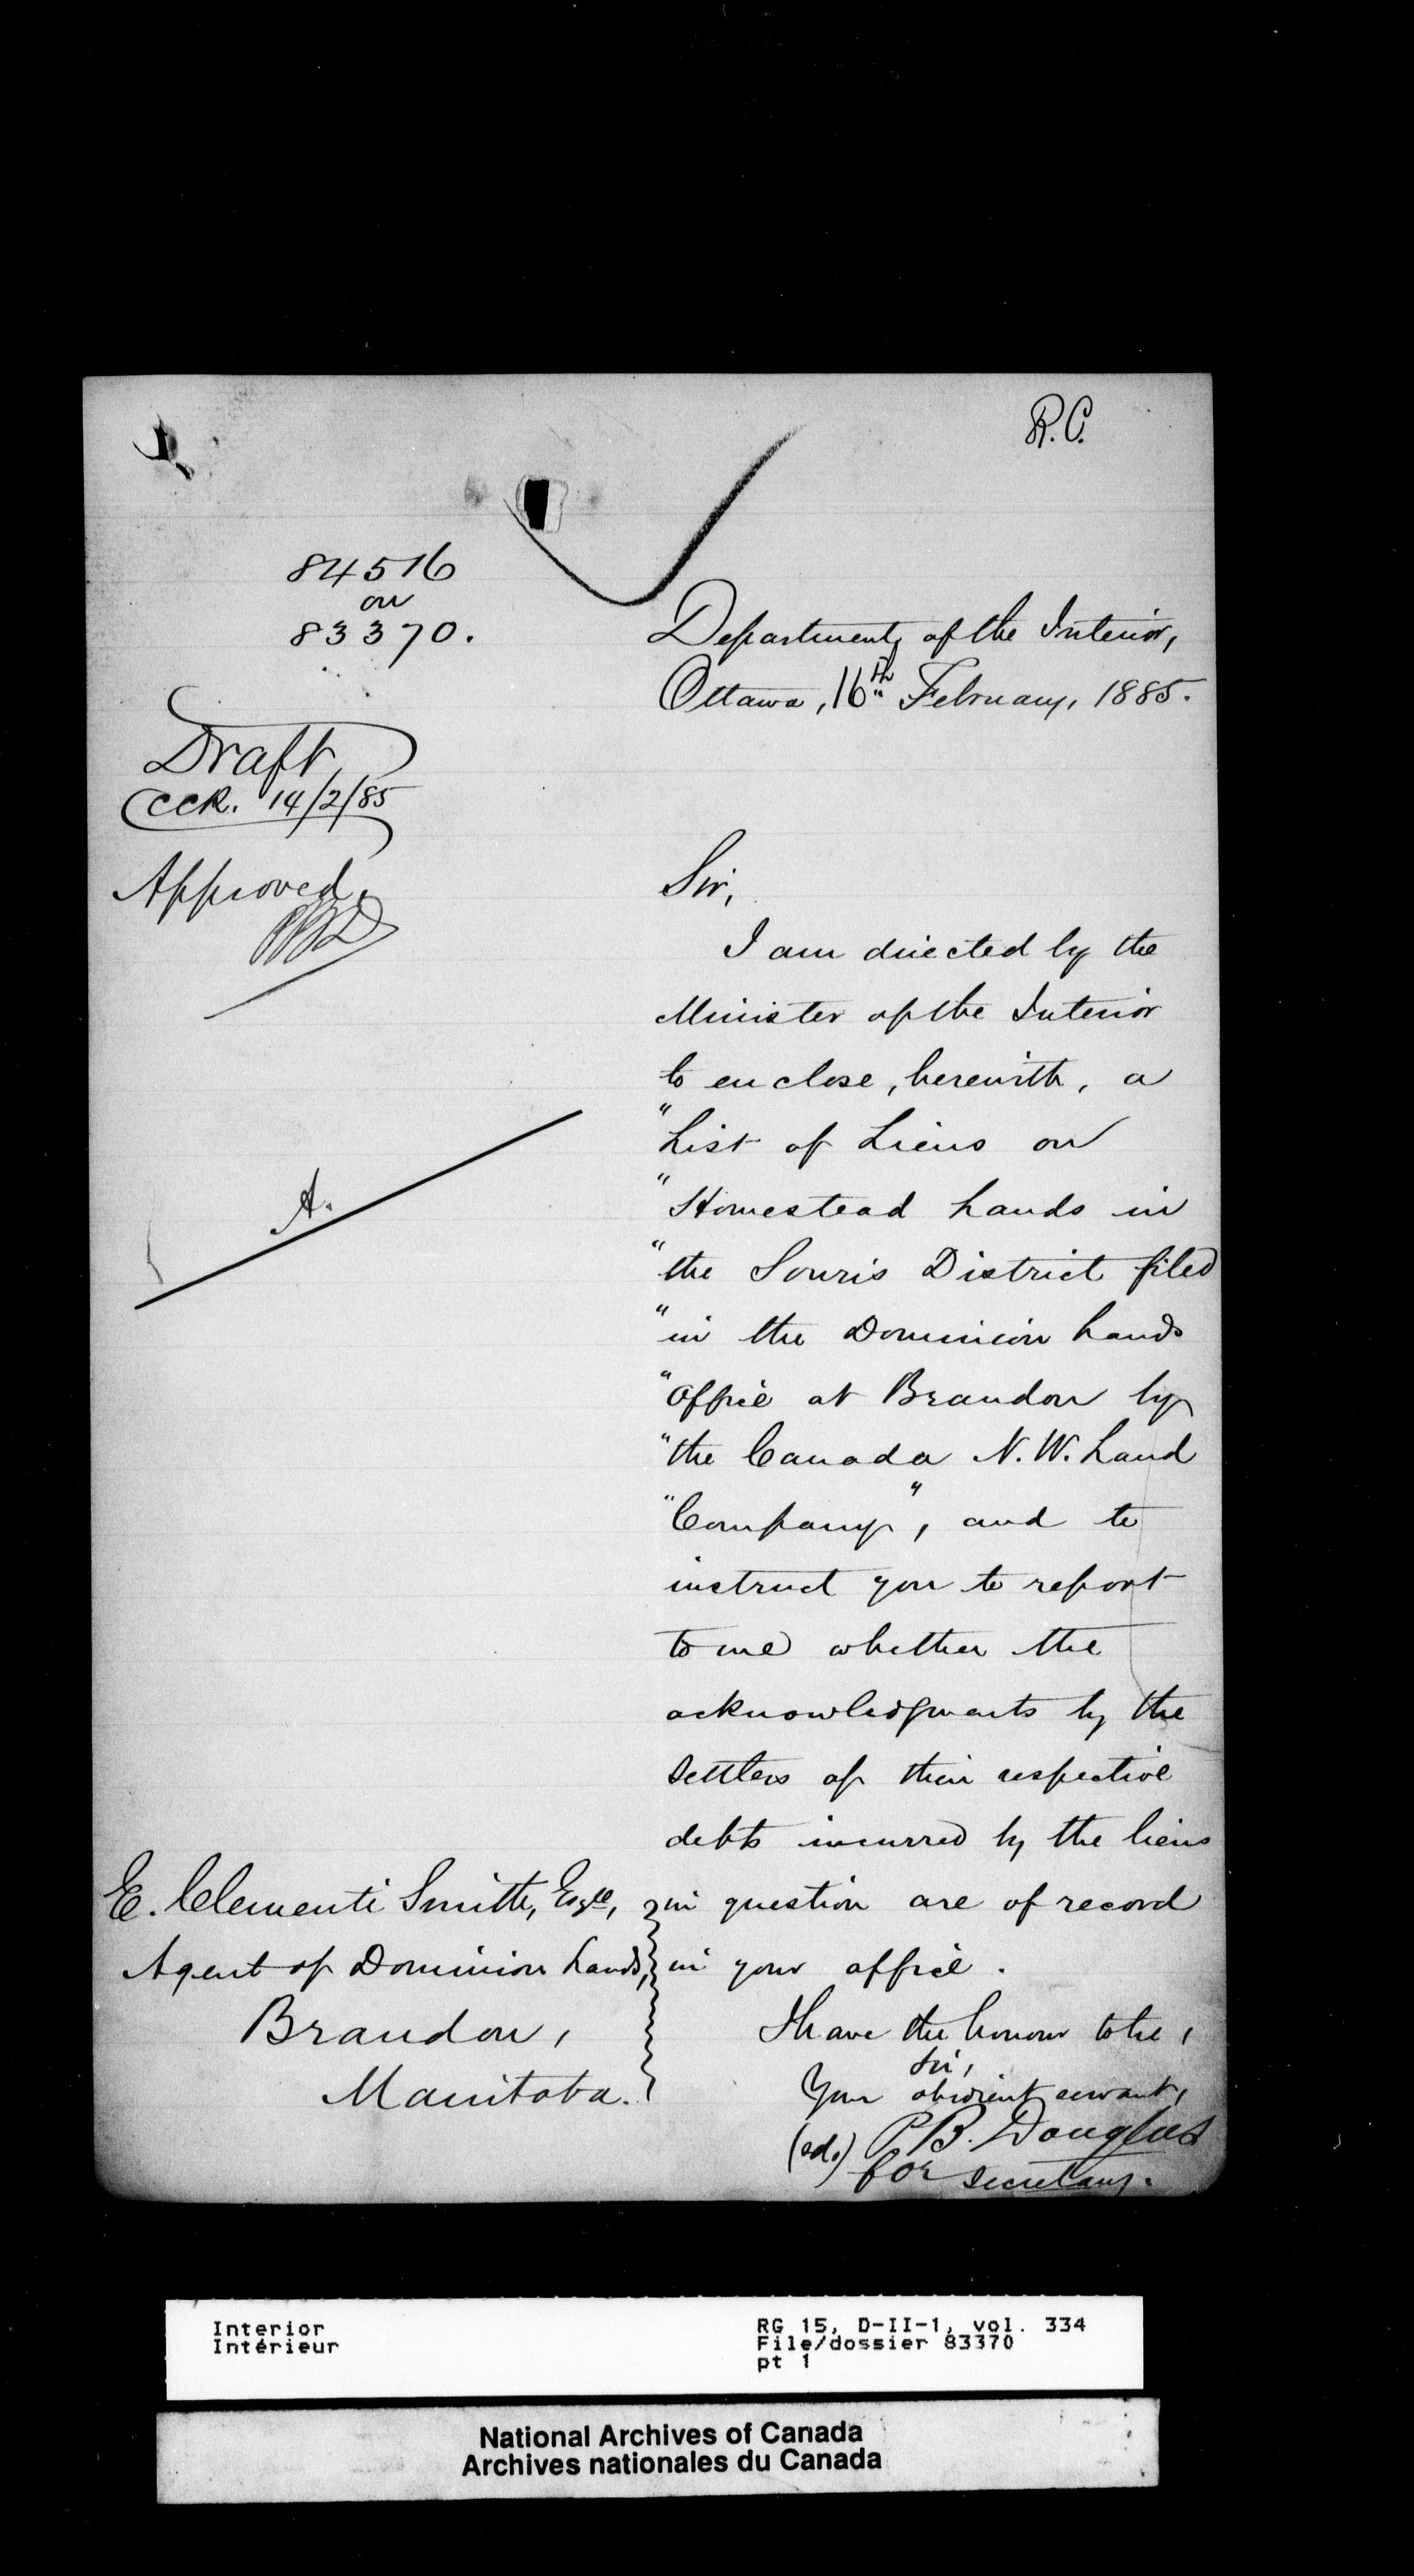 R.C.
84516
on
83370.
Department of the Interior,
Ottawa, 16th February, 1885.
Draft
CCR. 14/2/85
Approved.
PBD
A.
Sir,
I am directed by the
Minister of the Interior
to enclose, herewith, a
"List of Liens on
"Homestead Lands in
"the Souris District filed
"in the Dominion Lands
"Office at Brandon by
"the Canada N.W. Land
"Company", and to
instruct you to report
to me whether the
acknowledgments by the
settlers of their respective
debts incurred by the liens
in question are of record
in your office.
E. Clementi Smith, Esqre,
Agent of Dominion Lands,
Brandon,
Manitoba.
I have the honour to be,
Sir,
Your obedient servant,
(sd.) P.B. Douglas
for Secretary.
Interior
Intérieur
RG 15, D-II-1, vol. 334
File/dossier 83370
pt 1
National Archives of Canada
Archives nationales du Canada